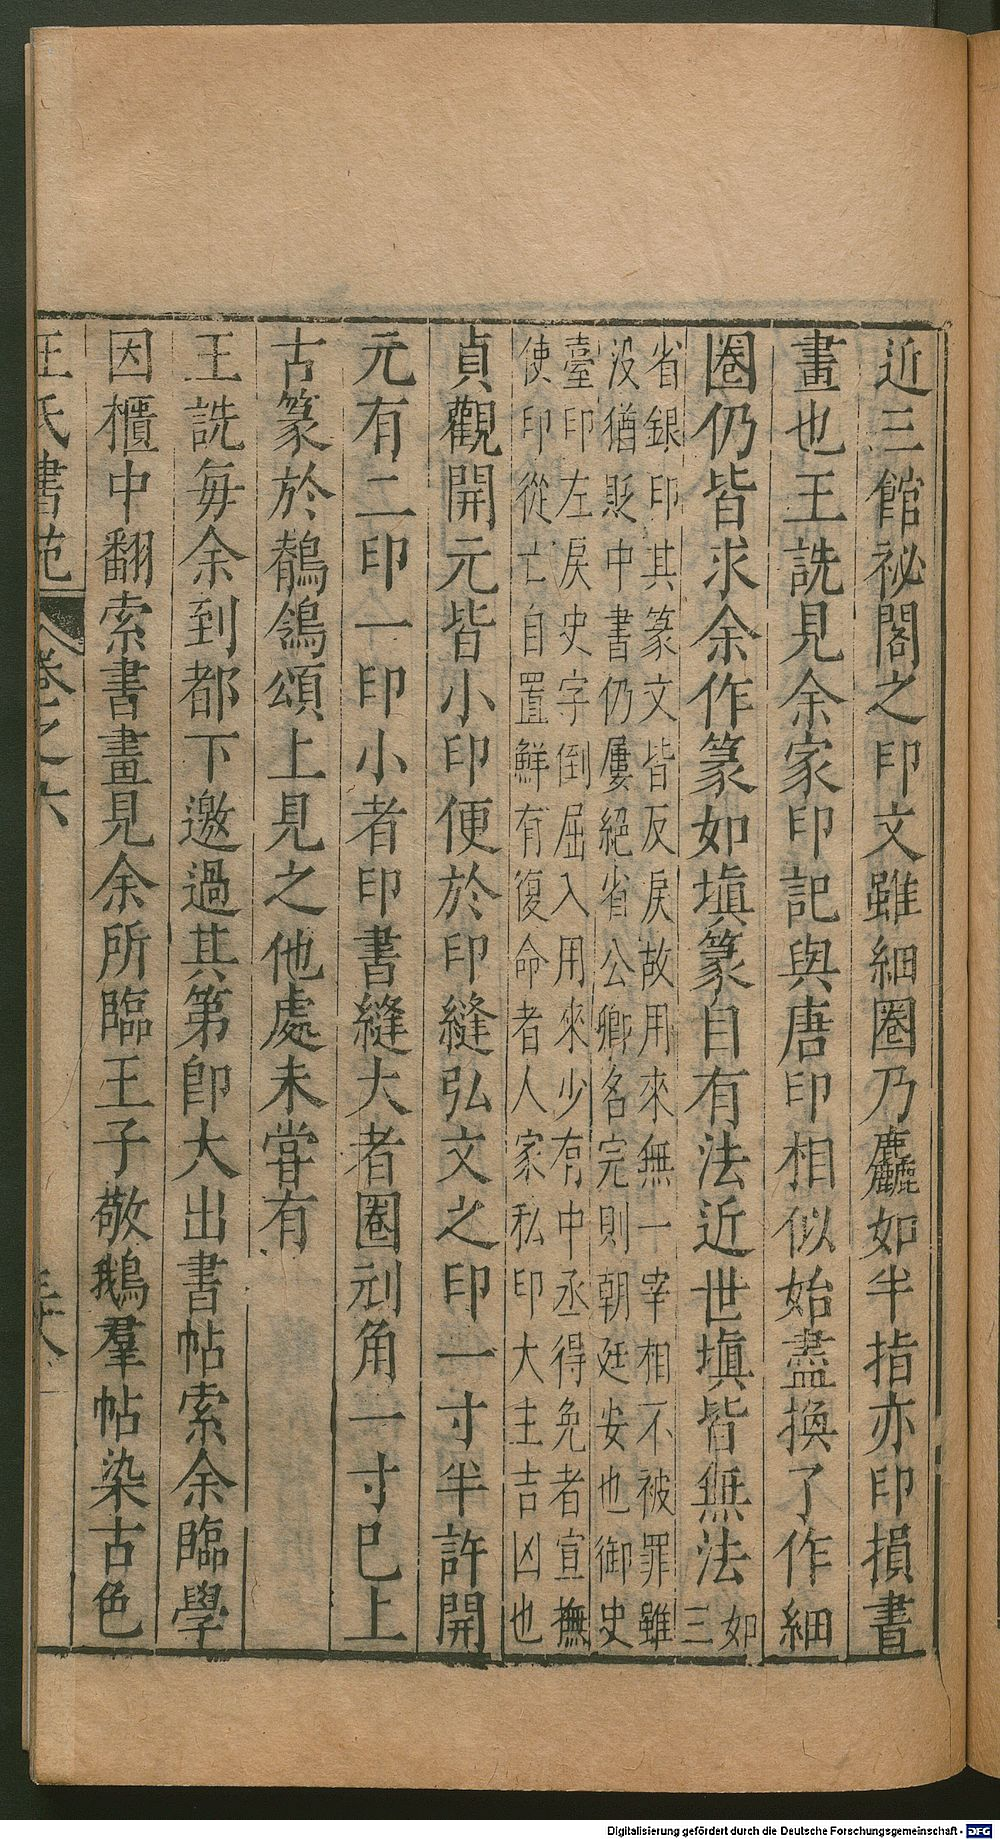 近三館祕閣之印文雖細圈乃麤如半指亦印損書
畫也王詵見余家印記與唐印相似始盡換了作細
圈仍皆求余作篆如塡篆自有法近世塡皆無法如三
省銀印其篆文皆反戾故用來無一宰相不被罪雖
没猶貶中書仍屢絕省公卿名完則朝廷安也御史
臺印左戾史字倒屈入用來少有中丞得免者宣撫
使印從亡自置鮮有復命者人家私印大主吉凶也
貞觀開元皆小印便於印縫弘文之印一寸半許開
元有二印一印小者印書縫大者圈刓角一寸巳上
古篆於鶺鴒頌上見之他處未甞有
王詵每余到都下邀過其第卽大出書帖索余臨學
因櫃中翻索書畫見余所臨王子敬鵝羣帖染古色
王氏書苑
卷之六
Digitalisierung gefördert durch die Deutsche Forschungsgemeinschaft - DFG